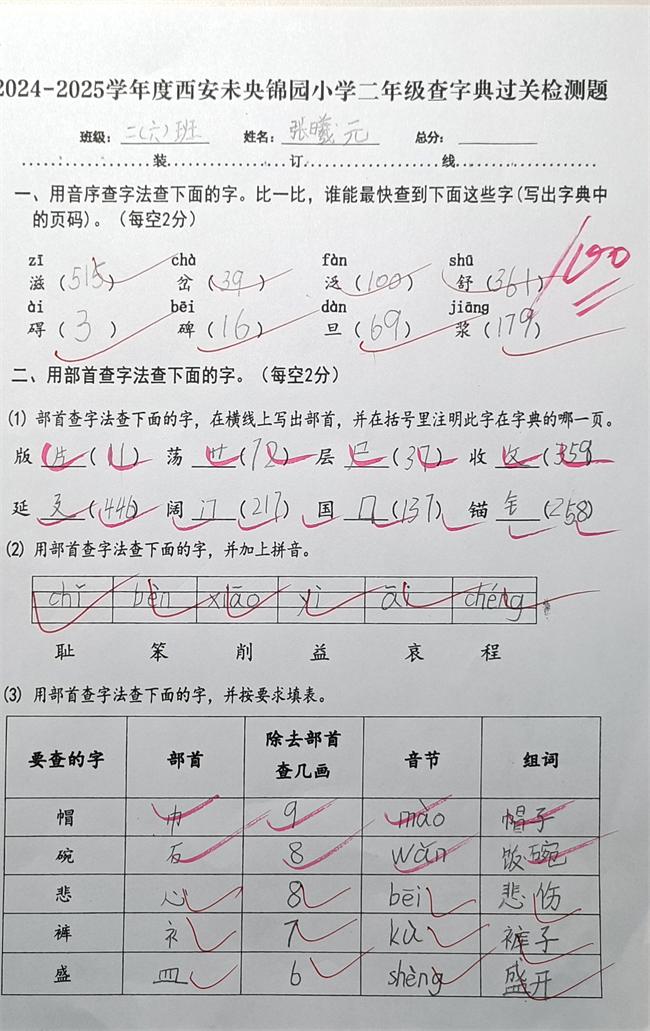 2024-2025学年度西安未央锦园小学二年级查字典过关检测题
班级：二(六)班 姓名：张曦元 总分：
装 订 线
一、用音序查字法查下面的字。比一比，谁能最快查到下面这些字(写出字典中
的页码)。（每空2分）
zī chà fàn shū
滋（515） 岔（39） 泛（100） 舒（361）
100
ài bēi dàn jiāng
碍（3） 碑（16） 旦（69） 浆（179）
二、用部首查字法查下面的字。（每空2分）
(1) 部首查字法查下面的字，在横线上写出部首，并在括号里注明此字在字典的哪一页。
版 片（11） 荡 艹（72） 层 尸（37） 收 攵（359）
延 廴（446） 阔 门（217） 国 囗（137） 锚 钅（258）
(2) 用部首查字法查下面的字，并加上拼音。
chǐ bèn xiāo yì āi chéng
耻 笨 削 益 哀 程
(3) 用部首查字法查下面的字，并按要求填表。
要查的字 部首 除去部首查几画 音节 组词
帽 巾 9 mào 帽子
碗 石 8 wǎn 饭碗
悲 心 8 bēi 悲伤
裤 衤 7 kù 裤子
盛 皿 6 shèng 盛开